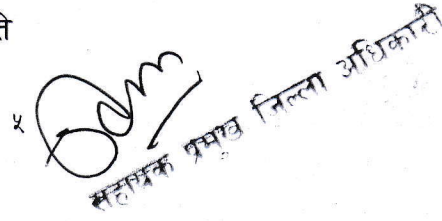 ते
५
सहायक प्रमुख जिल्ला अधिकारी